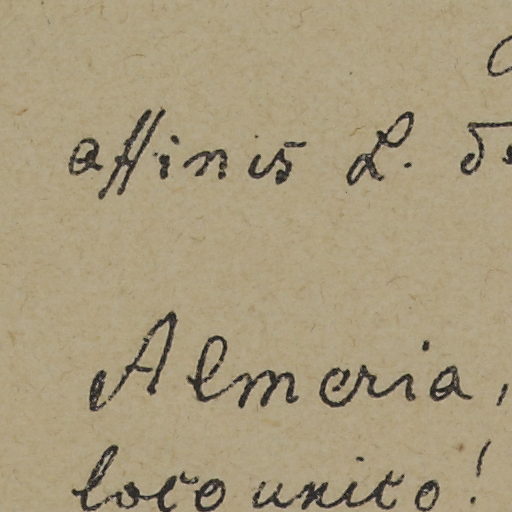 affinis L. 
Almeria,
loco unico!